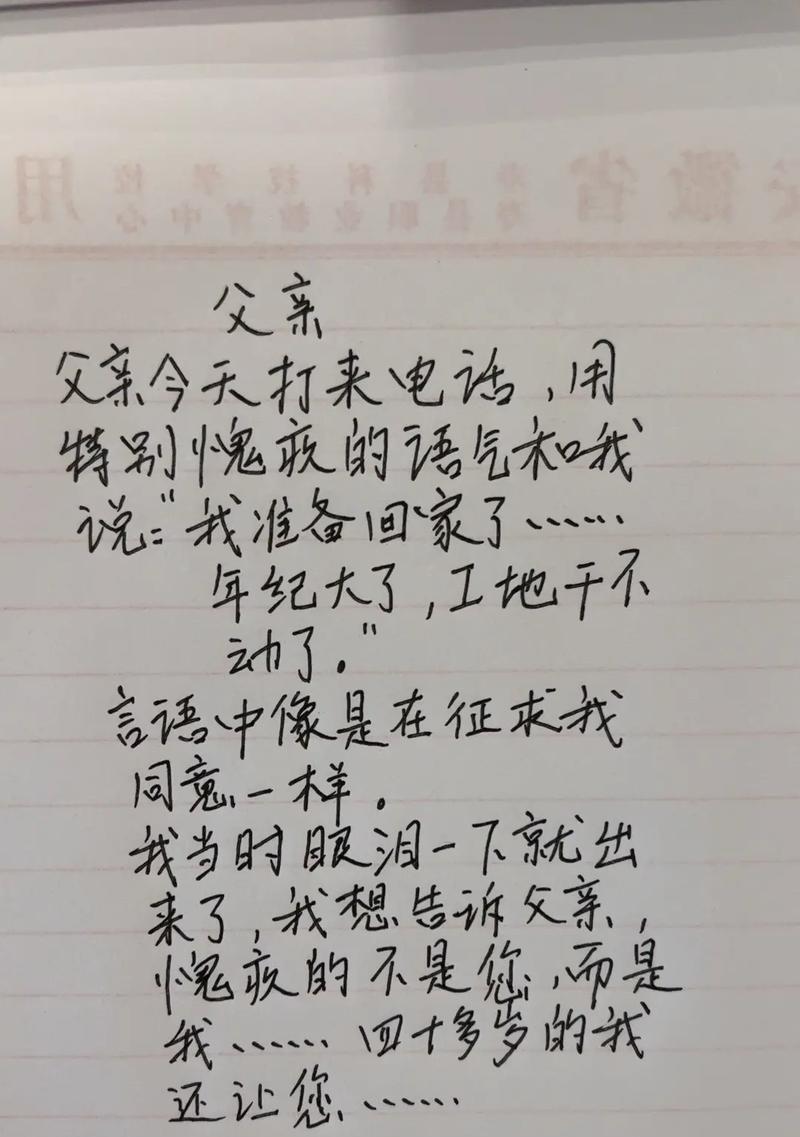 父亲
父亲今天打来电话,用
特别愧疚的语气和我
说:"我准备回家了……
年纪大了,工地干不
动了。"
言语中像是在征求我
同意一样。
我当时眼泪一下就出
来了,我想告诉父亲,
愧疚的不是您,而是
我……四十多岁的我
还让您……